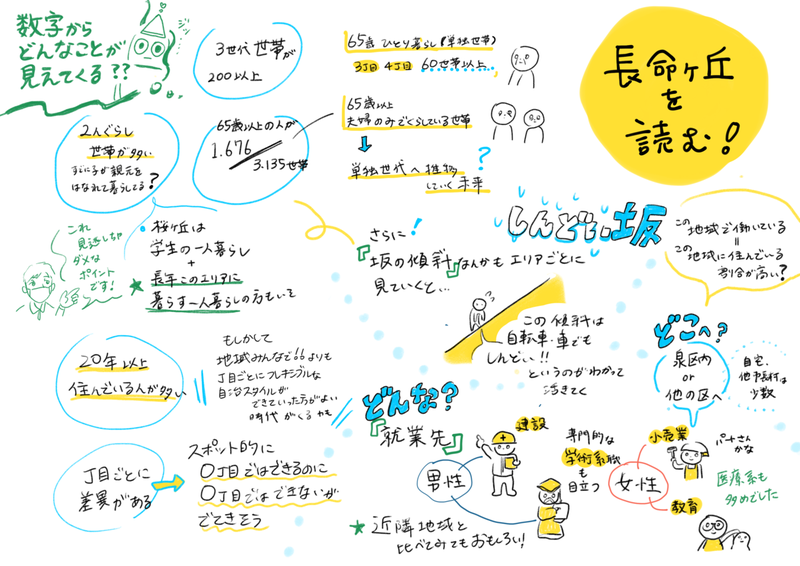 数字から
どんなことが
見えてくる??
3世代世帯が
200以上
65歳ひとり暮らし(単独世帯)
3丁目 4丁目 60世帯以上
長命ヶ丘
を
読む!
2人ぐらし
世帯が多い
すでに子が親元を
はなれて暮らしてる?
65歳以上の人が
1.676
3.135世帯
65歳以上
夫婦のみでくらしている世帯
単独世代へ推移
していく未来
?
これ
見逃しちゃ
ダメな
ポイント
です!
桜ヶ丘は
学生の一人暮らし
+
長年このエリアに
暮らす一人暮らしの方もいそ
さらに!
『坂の傾斜』なんかもエリアごとに
見ていくと…
しんどい坂
この地域で働いている
=
この地域に住んでいる
割合が高い?
この傾斜は
自転車・車でも
しんどい!!
というのがわかって
活きてく
どこへ?
泉区内
or
他の区へ
自宅、
他市町村は
少数
20年以上
住んでいる人が多い
もしかして
地域みんなで66よりも
丁目ごとにフレキシブルな
自治スタイルが
できていった方がよい
時代がくるかも
丁目ごとに
差異がある
スポット的に
○丁目ではできるのに
○丁目ではできないが
でてきそう
どんな?
『就業先』
男性
建設
専門的な
学術系職
も
目立つ
女性
小売業
パートさん
かな
医療系も
多めでした
教育
★近隣地域と
比べてみてもおもしろい!